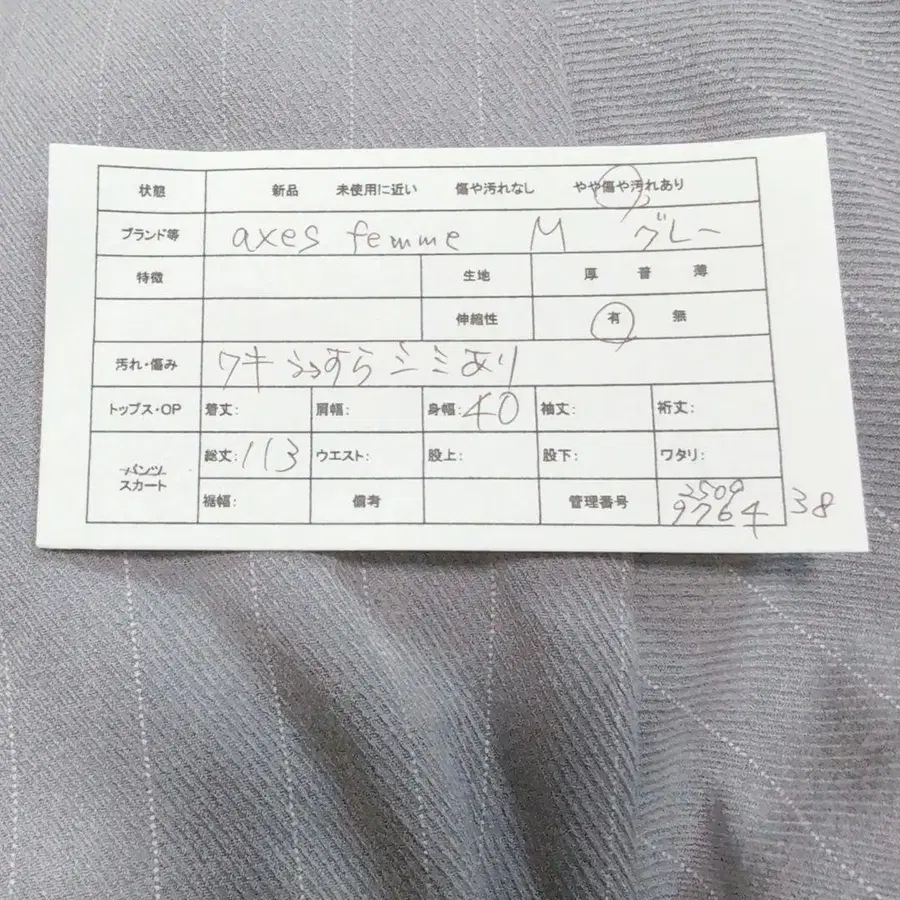 状態 新品 未使用に近い 傷や汚れなし やや傷や汚れあり
ブランド等 axes femme M グレー
特徴 生地 厚 普 薄
伸縮性 有 無
汚れ・傷み ワキうっすらシミあり
トップス・OP 着丈: 肩幅: 身幅:40 袖丈: 裄丈:
パンツ
スカート
総丈:113 ウエスト: 股上: 股下: ワタリ:
裾幅: 備考 管理番号 2509
9764 38